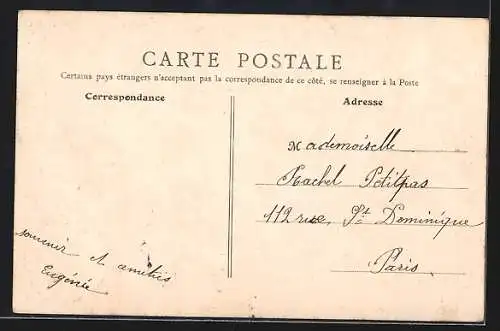 CARTE POSTALE
Certains pays étrangers n'acceptant pas la correspondance de ce côté, se renseigner à la Poste
Correspondance
souvenir et amitiés
Eugénie
Adresse
Mademoiselle
Rachel Petitpas
112 rue, St Dominique
Paris